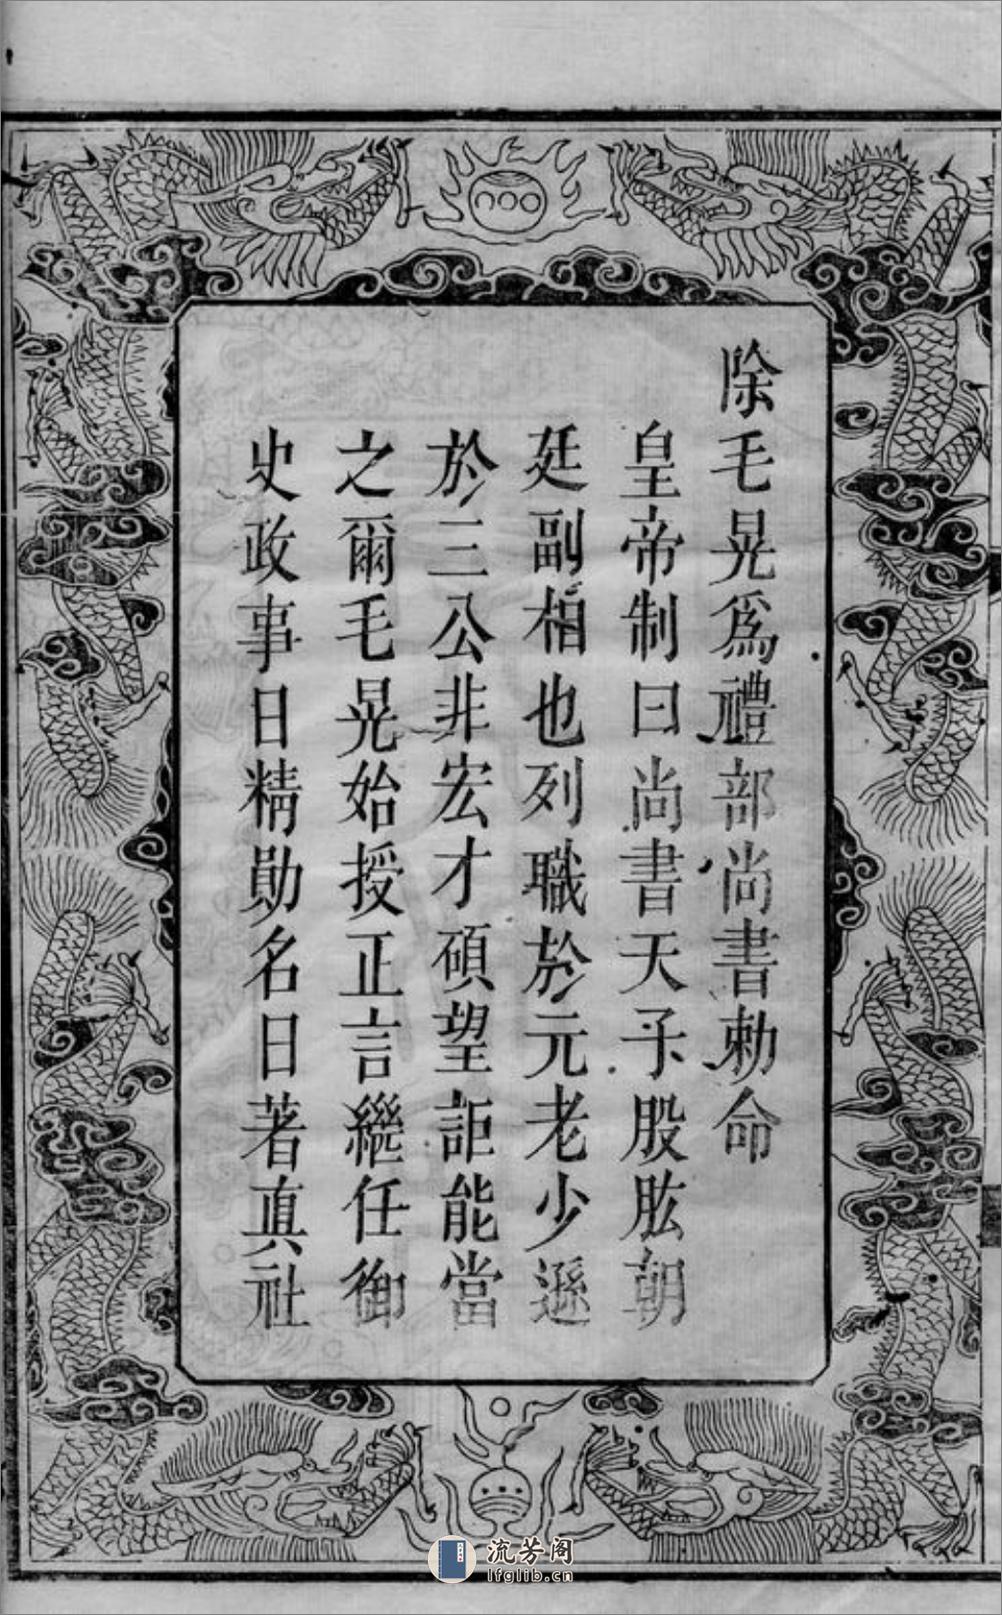 除毛晃爲禮部尚書勅命
皇帝制曰尚書天子股肱朝
廷副相也列職於元老少遜
於三公非宏才碩望詎能當
之爾毛晃始授正言繼任御
史政事日精勛名日著真社
流芳阁
lfglib.cn